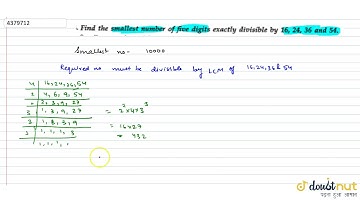 4379712
. Find the smallest number of five digits exactly divisible by 16, 24, 36 and 54.
Smallest no- 10000
Required no must be divisible by LCM of 16,24,36 & 54
16,24,36,54
4, 6, 9, 54
2, 3, 9, 27
3 1, 3, 9, 27
3
1, 1, 1, 1
= 16×27
= 432
doubtnut